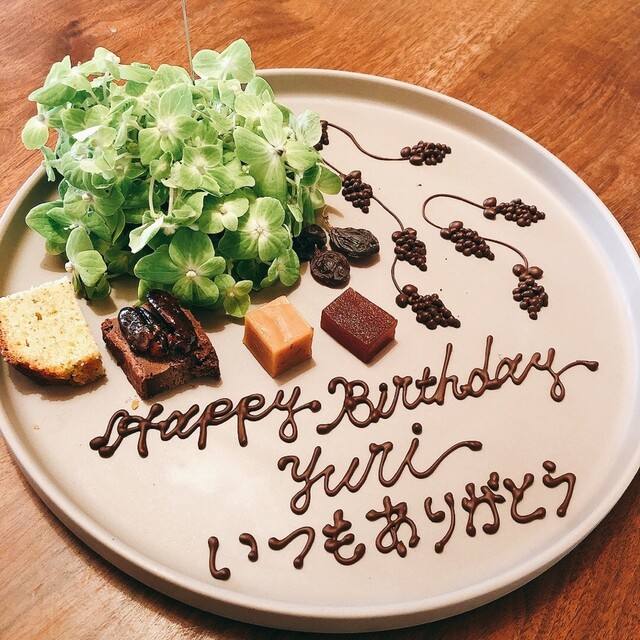 Happy Birthday
Yuri
いつもありがとう